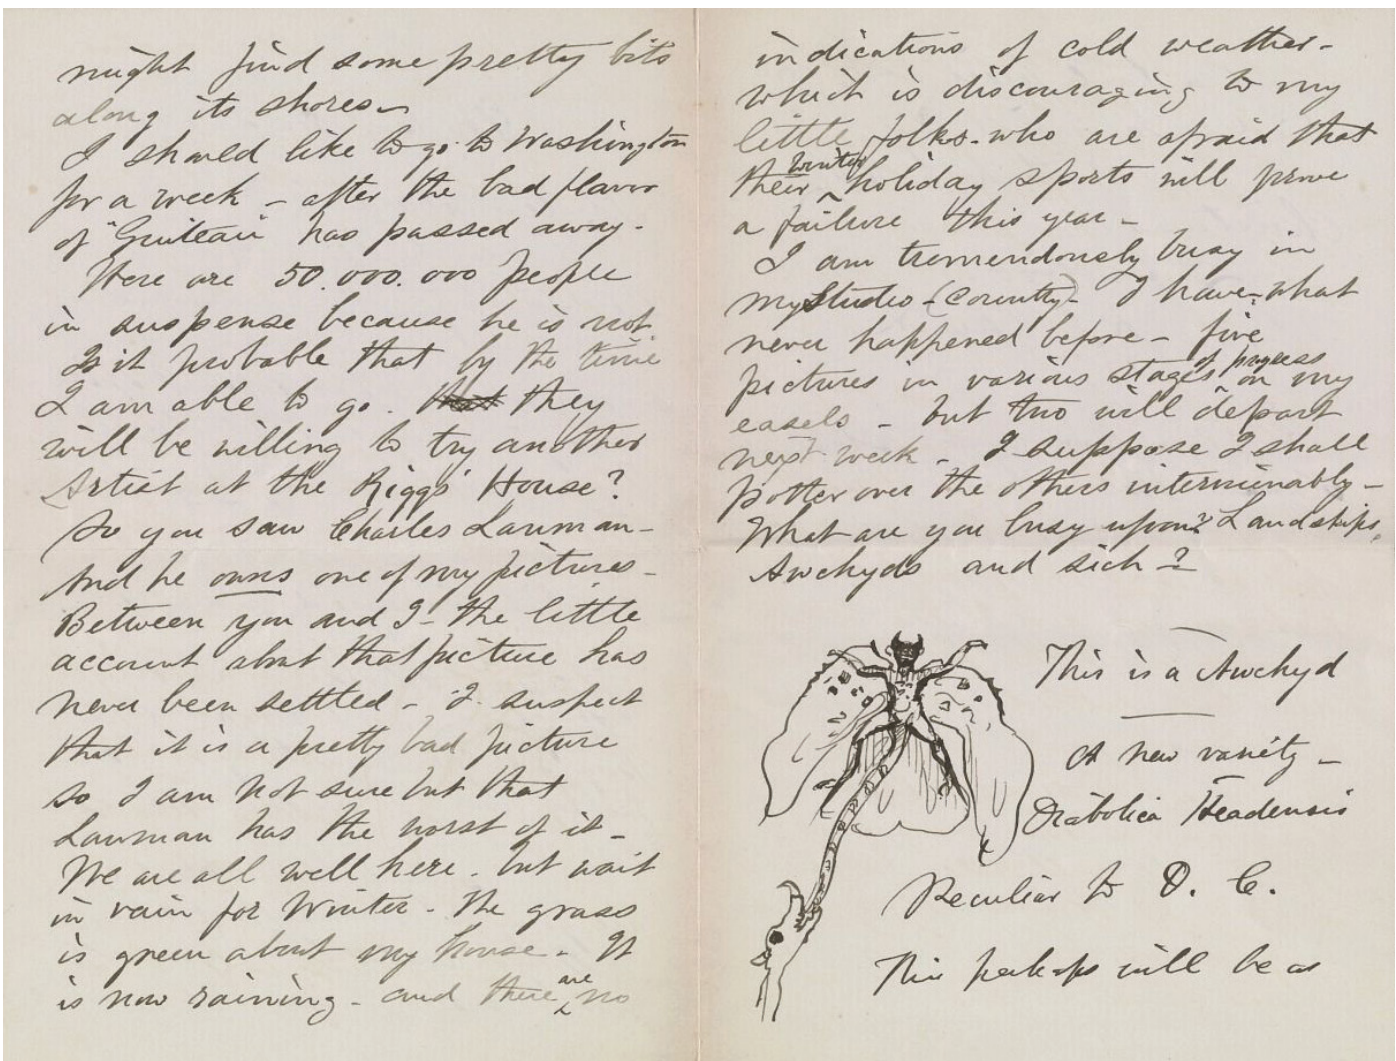 might find some pretty bits
along its shores—
I should like to go to Washington
for a week — after the bad flavor
of "Guiteau" has passed away.
Here are 50.000.000 people
in suspense because he is not
Is it probable that by the time
I am able to go. that they
will be willing to try another
Artist at the Riggs' House?
So you saw Charles Lanman—
And he owns one of my pictures—
Between you and I— the little
account about that picture has
never been settled — I suspect
that it is a pretty bad picture
so I am not sure but that
Lanman has the worst of it—
We are all well here. but wait
in vain for Winter — The grass
is green about my house — It
is now raining — and there are no
indications of cold weather—
which is discouraging to my
little folks. who are afraid that
their winter holiday sports will prove
a failure this year—
I am tremendously busy in
my Studio — (country) — I have, what
never happened before — five
pictures in various stages of progress on my
easels — but two will depart
next week — I suppose I shall
potter over the others interminably—
What are you busy upon? Landskips,
Awchyds and sich?
This is a Awchyd
A new variety—
Diabolica Headensis
Peculiar to D. C.
This perhaps will be as